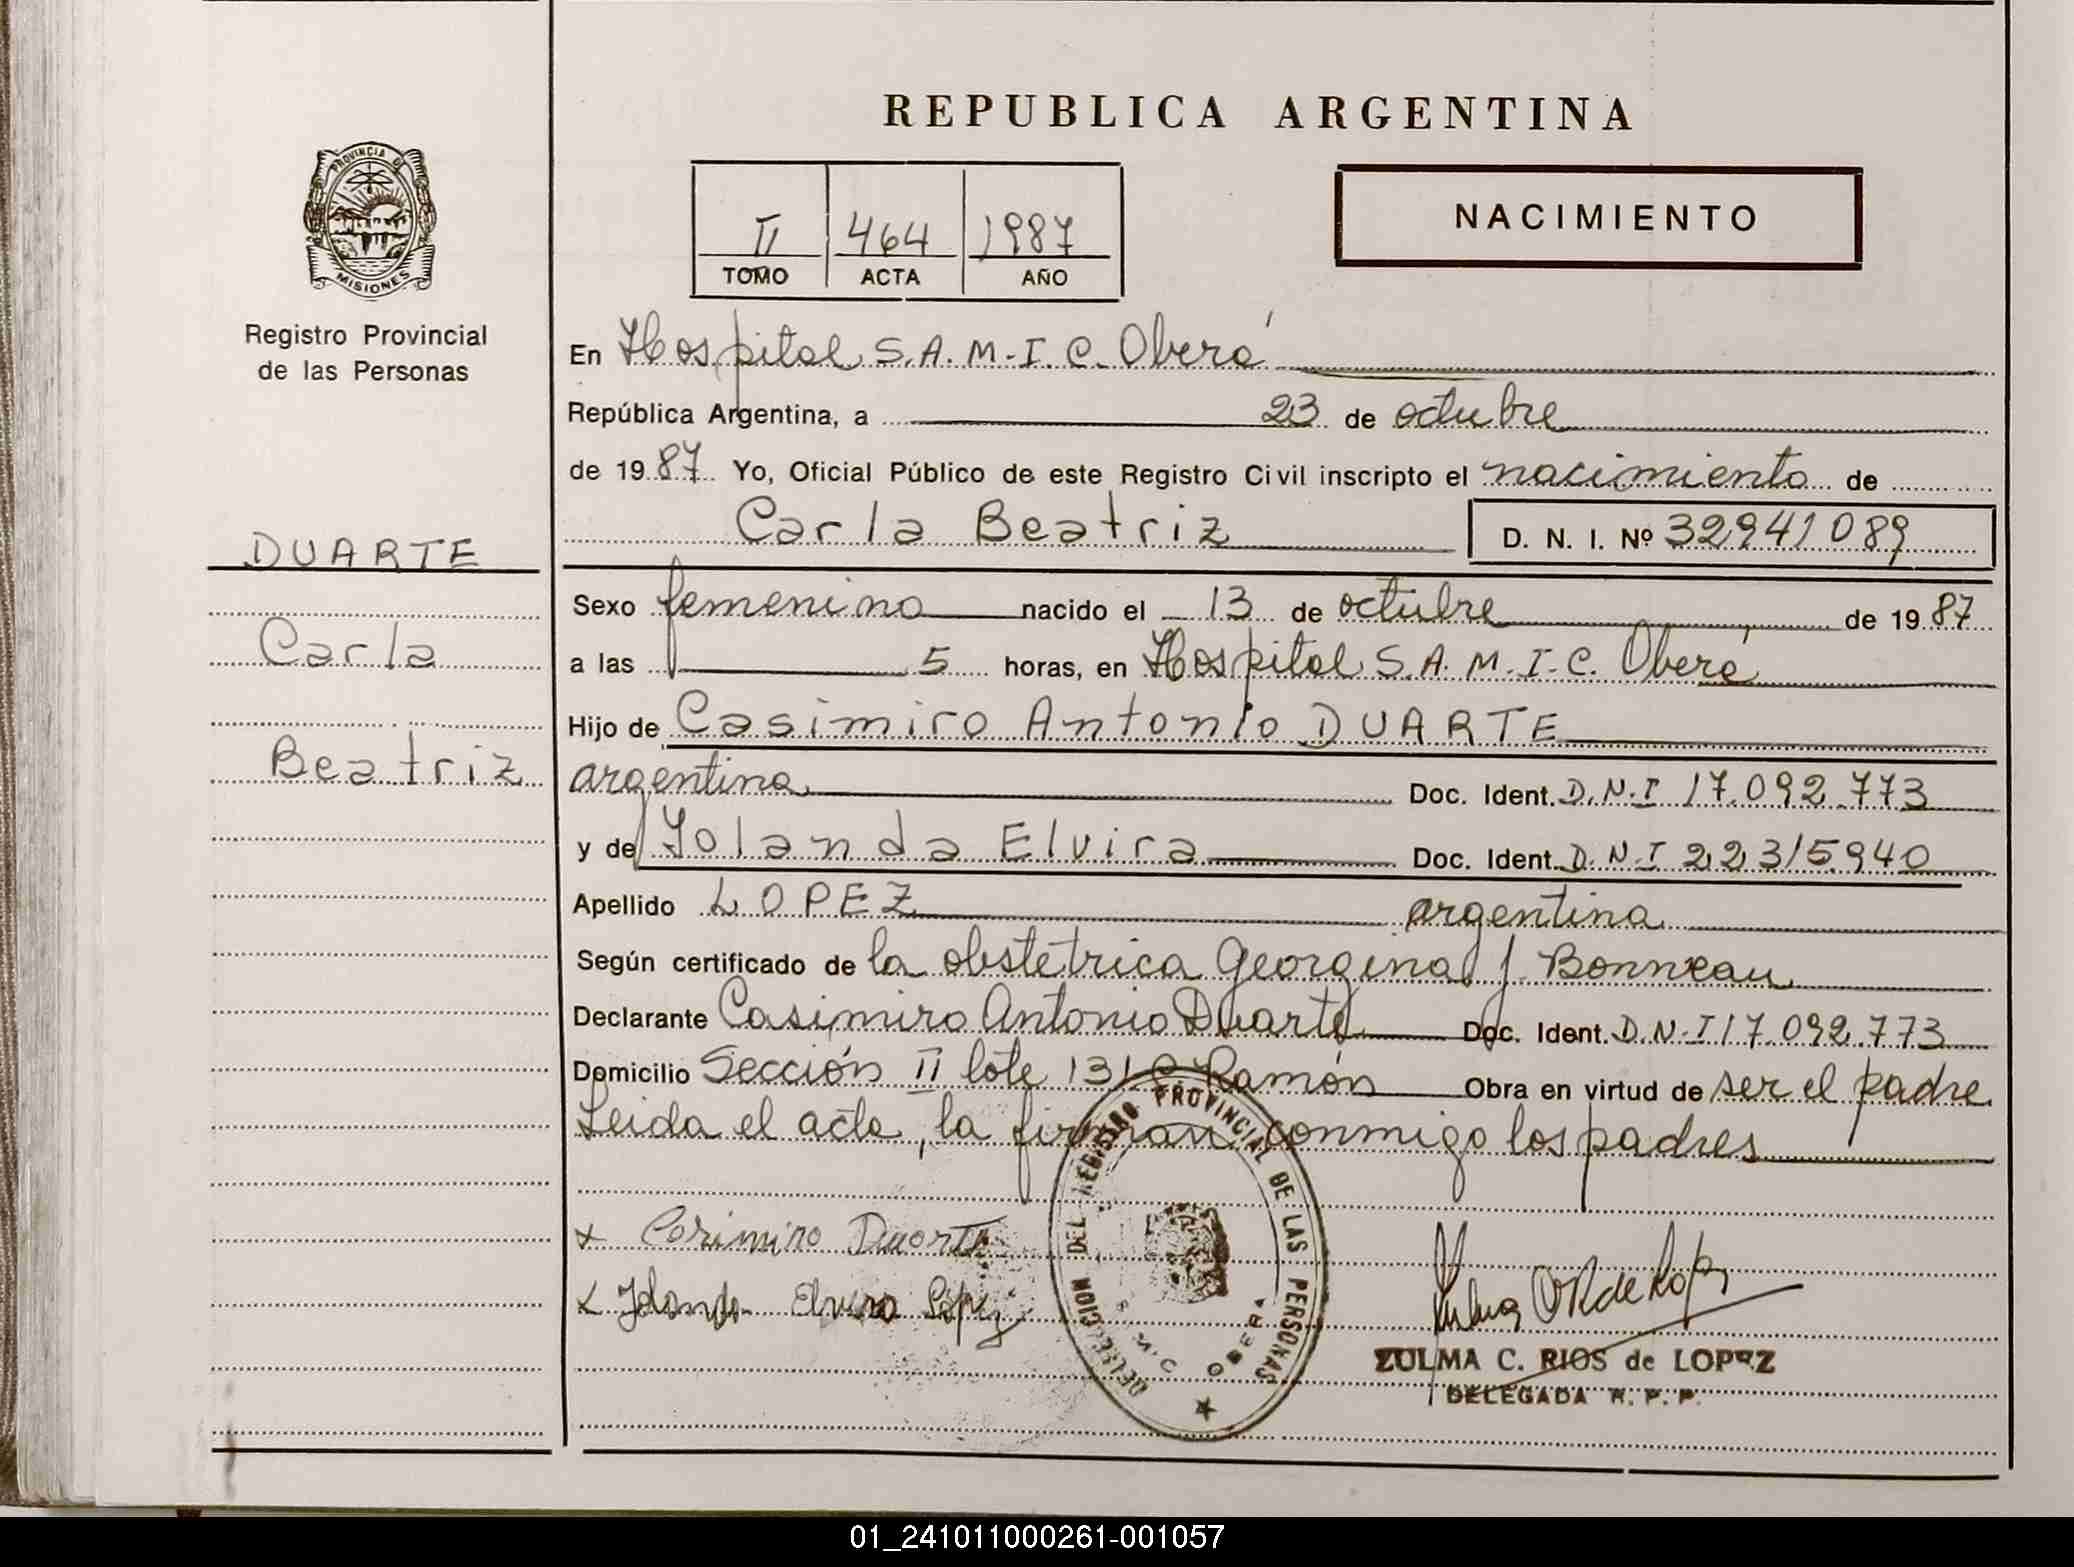 REPUBLICA ARGENTINA
PROVINCIA DE
MISIONES
Registro Provincial
de las Personas
DUARTE
Carla
Beatriz
II 464 1987
TOMO ACTA AÑO
NACIMIENTO
En Hospital S.A.M.I.C. Oberá
República Argentina, a 23 de octubre
de 1987 Yo, Oficial Público de este Registro Civil inscripto el nacimiento de
Carla Beatriz D. N. I. Nº 32941089
Sexo femenino nacido el 13 de octubre de 1987
a las 5 horas, en Hospital S.A.M.I.C. Oberá
Hijo de Casimiro Antonio DUARTE
argentina Doc. Ident. D.N.I 17.092.773
y de Yolanda Elvira Doc. Ident. D.N.I 22315940
Apellido LOPEZ argentina
Según certificado de la obstetrica Georgina J. Bonneau
Declarante Casimiro Antonio Duarte Doc. Ident. D.N.I 17.092.773
Domicilio Sección II lote 131 Ramón Obra en virtud de ser el padre
Leida el acta, la firman conmigo los padres
x Casimiro Duarte
x Yolanda Elvira López
DELEGACION DEL REGISTRO PROVINCIAL DE LAS PERSONAS
OBERA
ZULMA C. RIOS de LOPEZ
DELEGADA R. P. P.
01_241011000261-001057